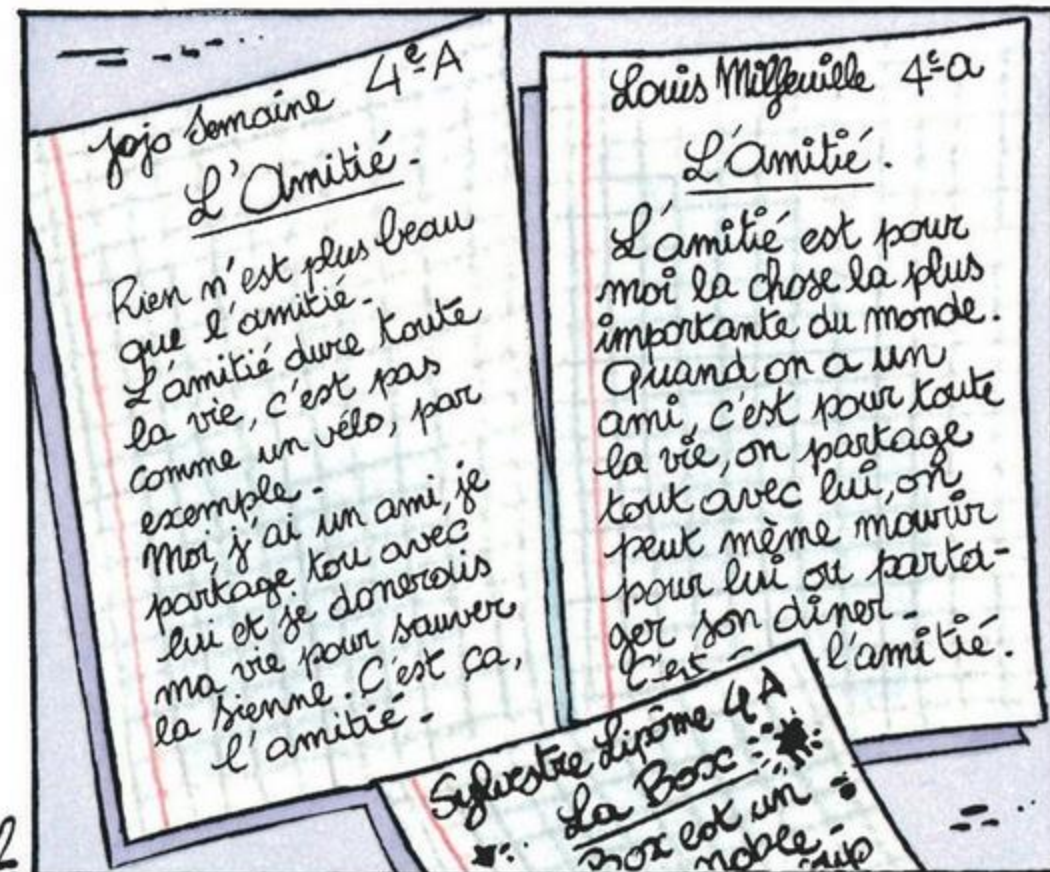 Jojo Semaine 4e A
L'Amitié.
Rien n'est plus beau
que l'amitié.
L'amitié dure toute
la vie, c'est pas
comme un vélo, par
exemple.
Moi, j'ai un ami, je
partage tou avec
lui et je donerais
ma vie pour sauver
la sienne. C'est ça,
l'amitié.
Louis Milfeuille 4e a
L'Amitié.
L'amitié est pour
moi la chose la plus
importante du monde.
Quand on a un
ami, c'est pour toute
la vie, on partage
tout avec lui, on
peut même mourir
pour lui ou parta-
ger son dîner.
C'est l'amitié.
Sylvestre Lipôme 4 A
La Boxe
Box est un
noble